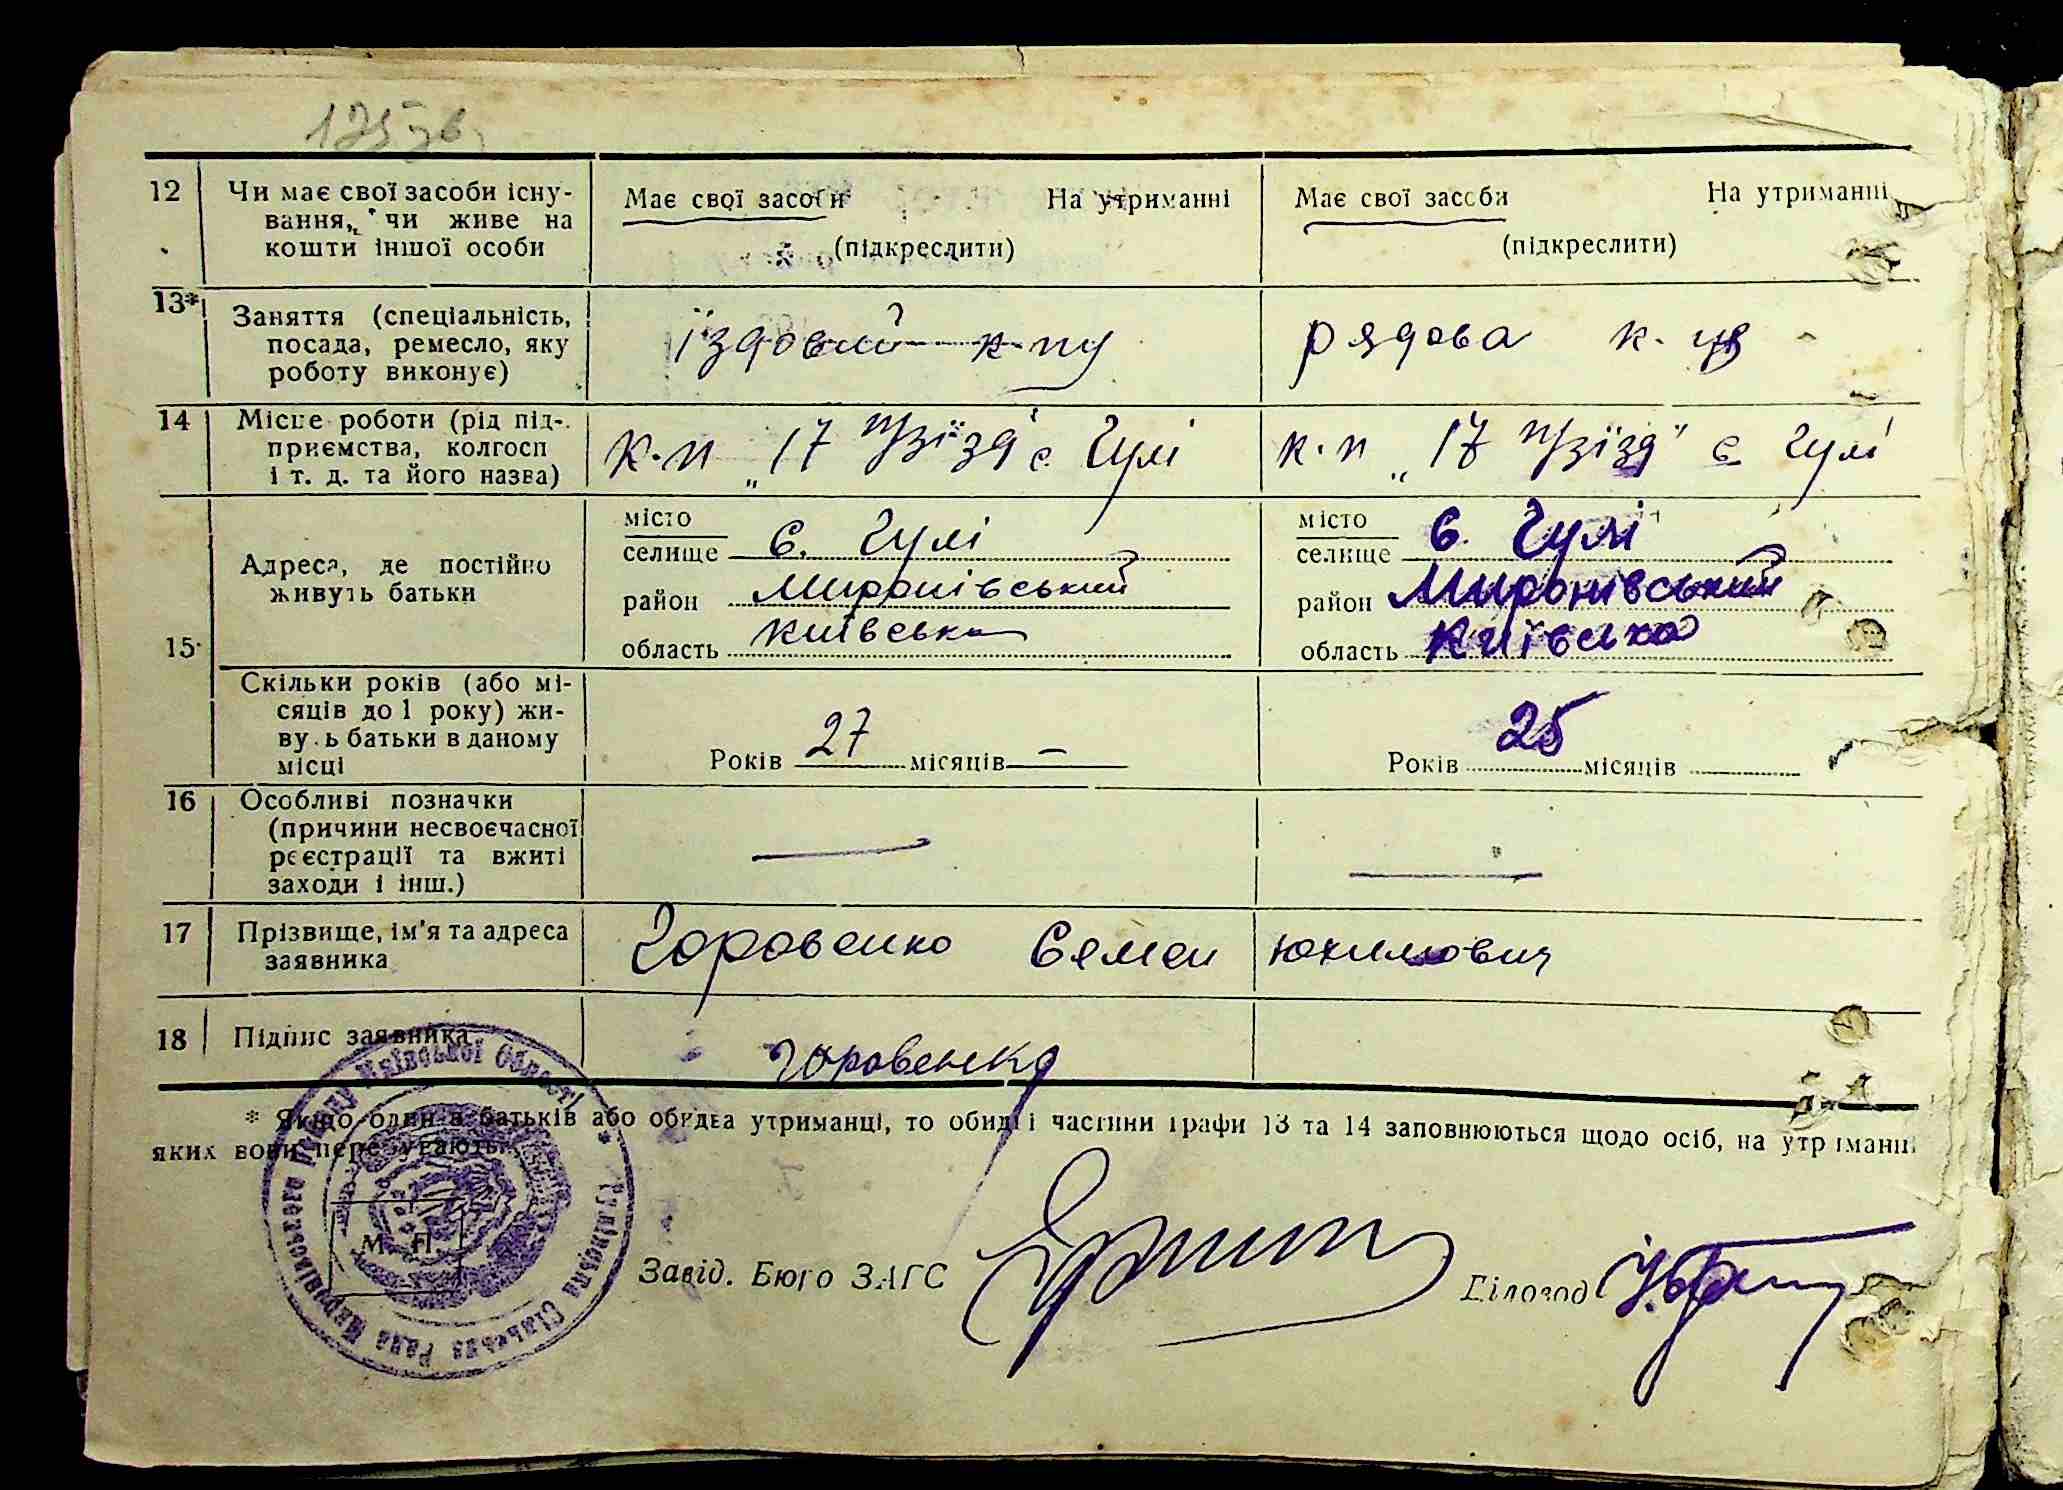 125 зв
12 Чи має свої засоби існу-
вання, чи живе на
кошти іншої особи
Має свої засоби На утриманні
(підкреслити)
Має свої засоби На утриманні
(підкреслити)
13* Заняття (спеціальність,
посада, ремесло, яку
роботу виконує)
їздовий к-пу
рядова к-
14 Місце роботи (рід під-
приємства, колгосп
і т. д. та його назва)
к-п „17 п/зїзд" с. Гулі
к-п „17 п/зїзд" с. Гулі
15 Адреса, де постійно
живуть батьки
місто
селище с. Гулі
район Миронівський
область Київська
місто
селище с. Гулі
район Миронівський
область Київська
Скільки років (або мі-
сяців до 1 року) жи-
вуть батьки в даному
місці
Років 27 місяців —
Років 25 місяців
16 Особливі позначки
(причини несвоєчасної
реєстрації та вжиті
заходи і інш.)
—
—
17 Прізвище, ім'я та адреса
заявника
Горовенко Семен Юхимович
18 Підпис заявника
Горовенко
* Якщо один з батьків або обидва утриманці, то обидві частини графи 13 та 14 заповнюються щодо осіб, на утриманні
яких вони перебувають.
М. П.
Гулівська Сільська Рада Миронівського району Київської Області
Завід. Бюро ЗАГС
Діловод